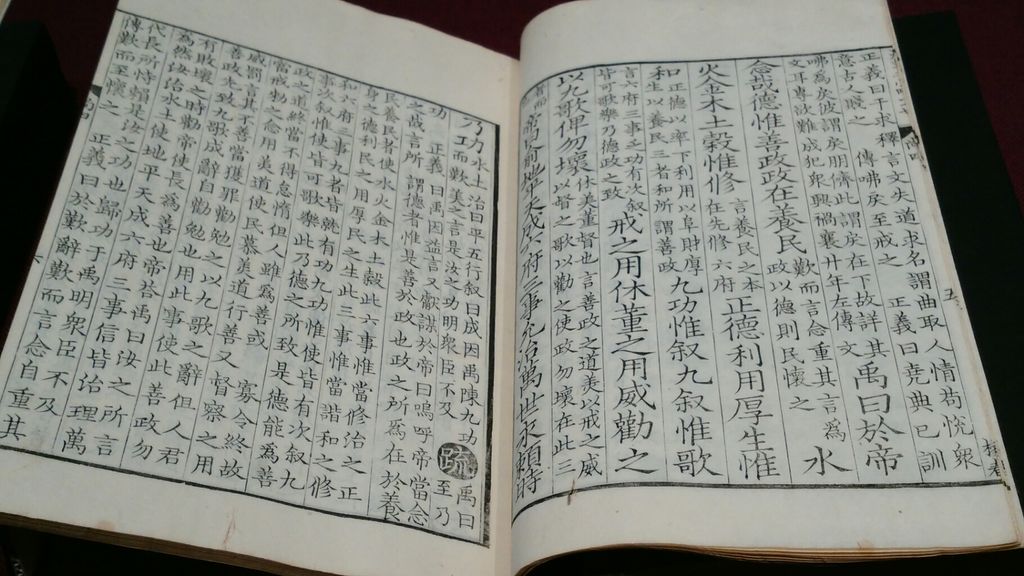 正義曰干求釋言文失道求名謂曲取人情苟悅衆
意古人賤之 傳咈戾至戒之 正義曰堯典已訓
咈為戾彼謂戾朋儕此謂戾在下故詳其
文耳專欲難成犯衆興禍襄十年左傳文
禹曰於帝
念哉德惟善政政在養民
歎而言念重其言為
政以德則民懷之
水
火金木土穀惟修
言養民之本
在先修六府
正德利用厚生惟
和
正德以率下利用以阜財厚
生以養民三者和所謂善政
九功惟叙九叙惟歌
言六府三事之功有次叙
皆可歌樂乃德政之致
戒之用休董之用威勸之
以九歌俾勿壞
休美董督也言善政之道美以戒之威
以督之歌以勸之使政勿壞在此三
者而
帝曰俞地平天成六府三事允治萬世永賴時
乃功
水土治曰平五行叙曰成因禹陳九功
而歎美之言是汝之功明衆臣不及
疏
禹曰
至乃
功 正義曰禹因益言又歎謀於帝曰嗚呼帝當念
之哉言所謂德者惟是善於政也政之所為在於養
民養民者使水火金木土穀此六事惟當修治之正
身之德利民之用厚民之生此三事惟當諧和之修
和六府三事九者皆就有功九功惟使皆有次叙九
事次叙惟使皆可歌樂此乃德之所致是德能為善
政之道終當不得怠惰但人雖為善或 寡令終故
當戒勑之念用美道使民慕美道行善又督察之用
威罰言其不善當獲罪勸勉之以九歌之辭但人君
善政先致九歌成辭自勸勉也用此事使此善政勿
有敗壞之時勸帝使長為善也帝荅禹曰汝之所言
為然汝治水土使地平天成六府三事信皆治理萬
代長所恃賴是汝之功也歸功于禹明衆臣不及
傳歎而至壞之 正義曰於歎辭歎而言念自重其